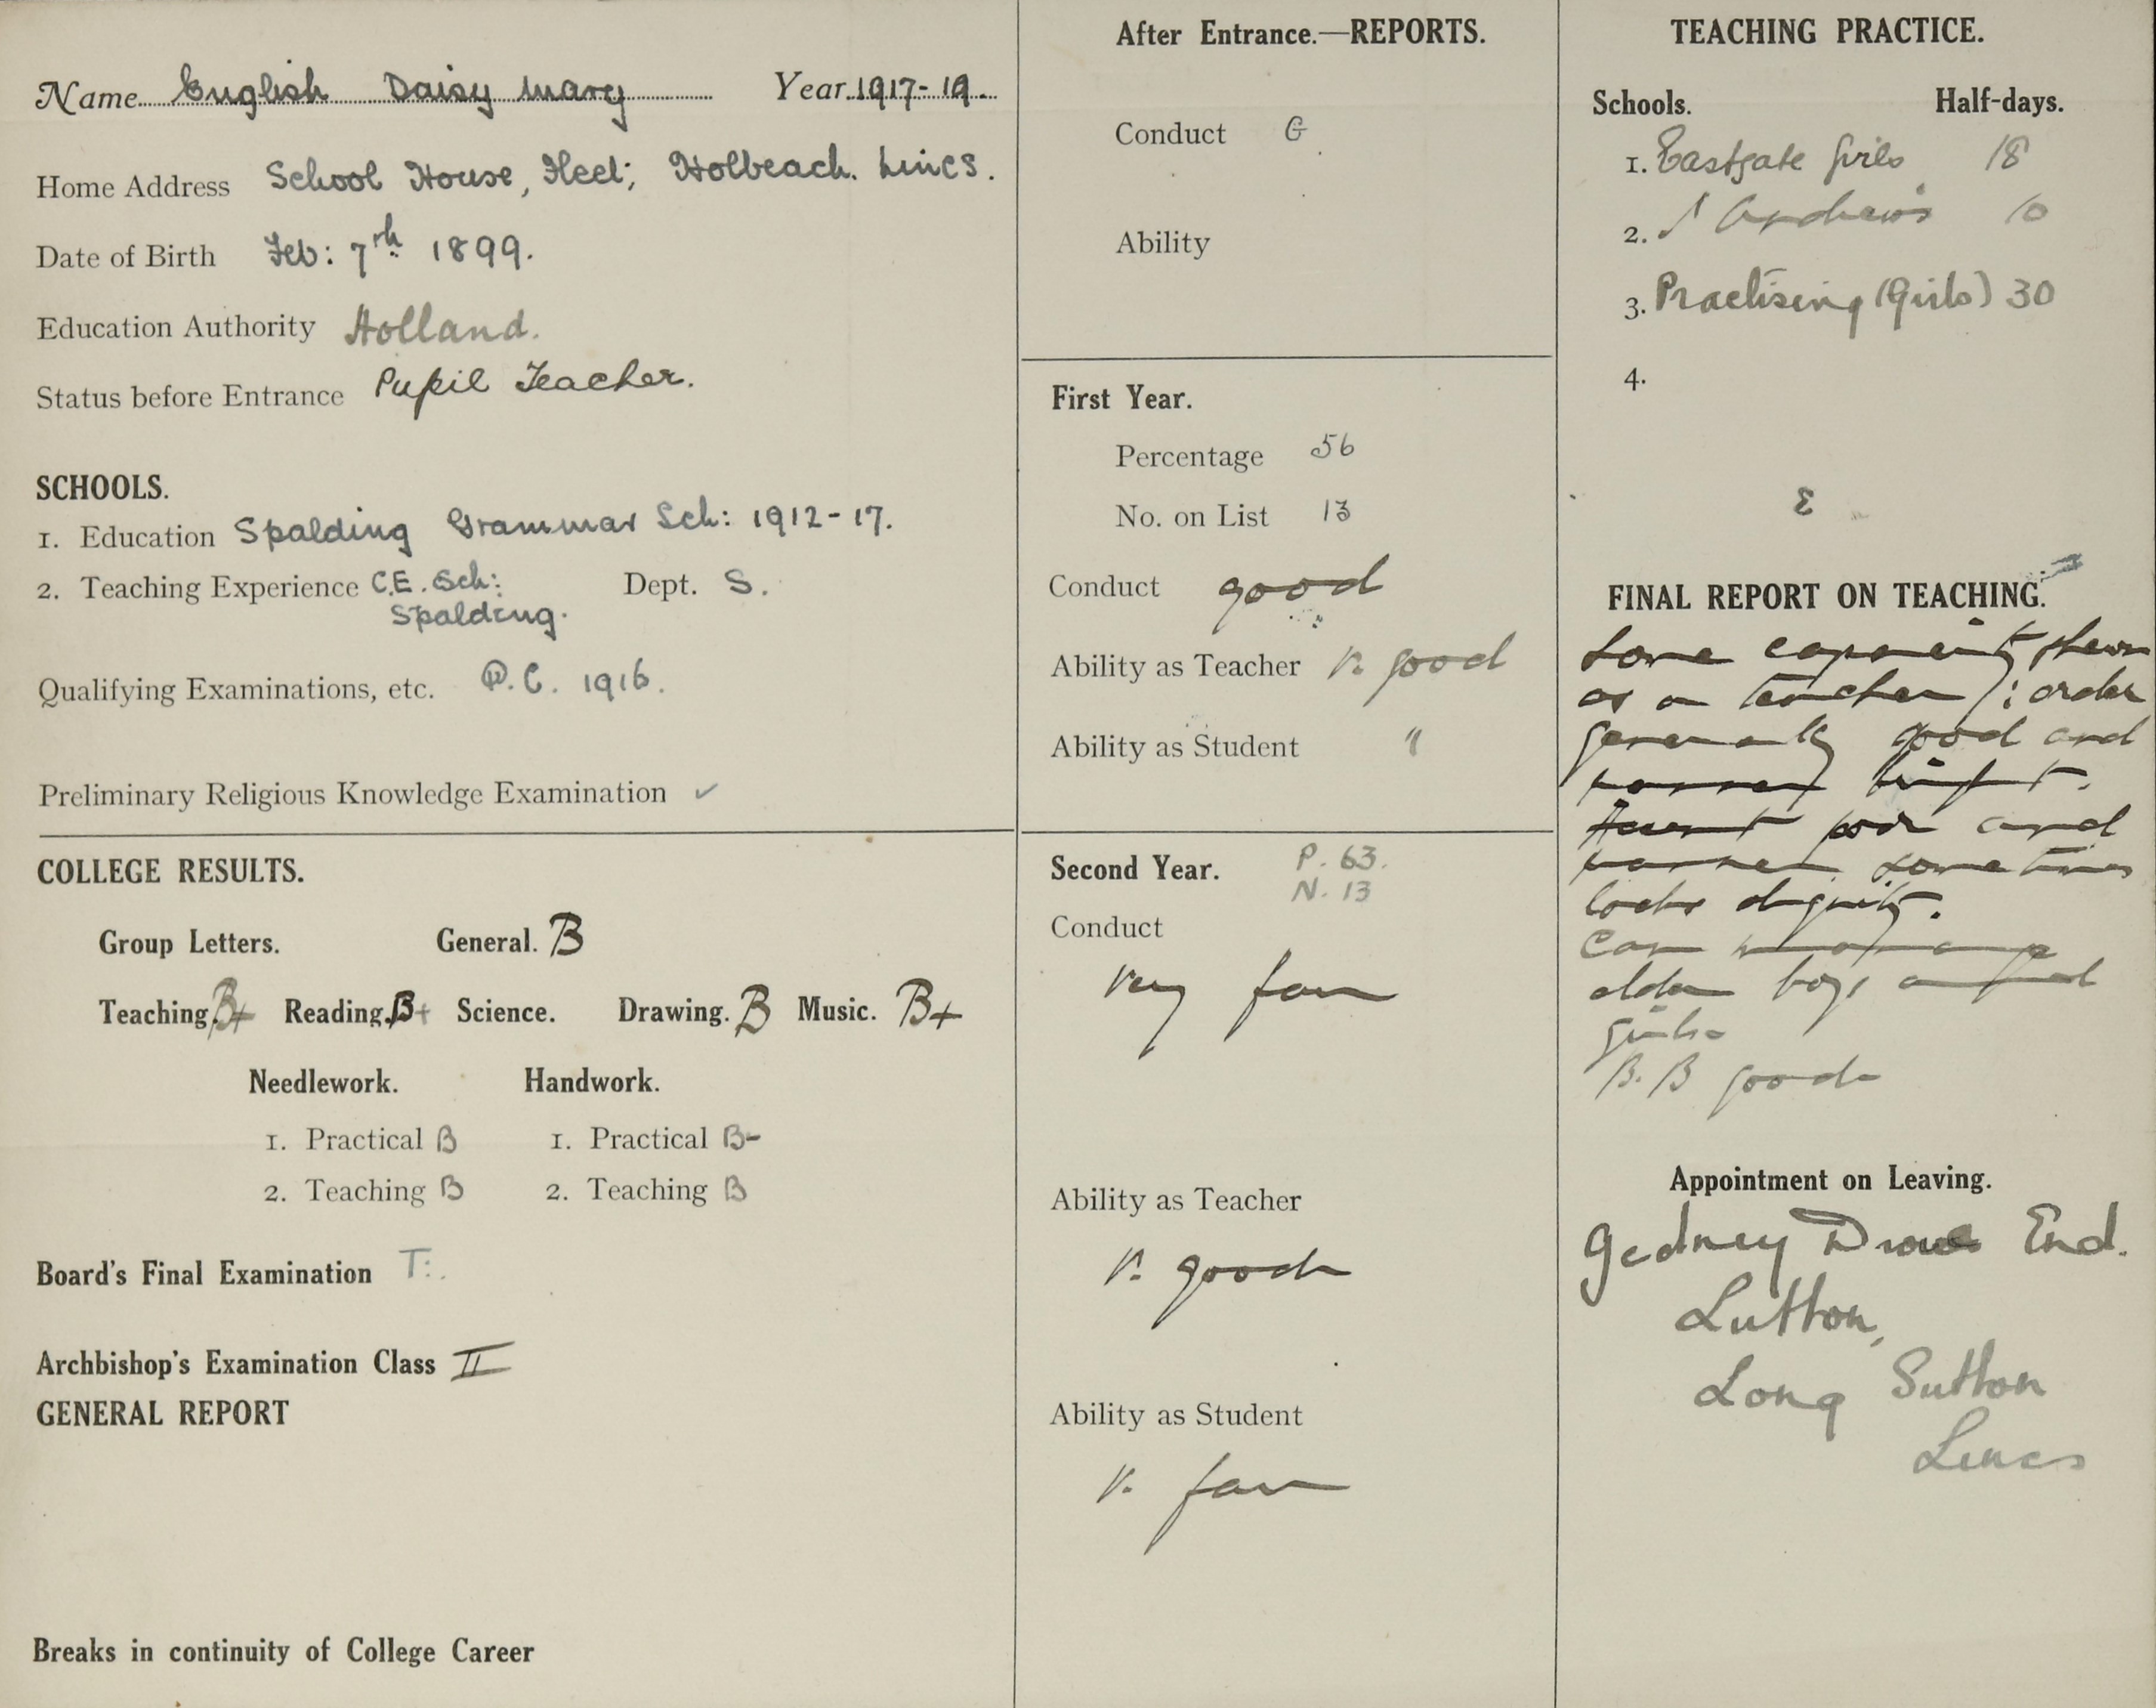 Name English Daisy Mary Year 1917-19.
Home Address School House, Fleet; Holbeach. Lincs.
Date of Birth Feb: 7th 1899.
Education Authority Holland.
Status before Entrance Pupil Teacher.
SCHOOLS.
1. Education Spalding Grammar Sch: 1912-17.
2. Teaching Experience C.E. Sch: Dept. S.
Spalding.
Qualifying Examinations, etc. P.C. 1916.
Preliminary Religious Knowledge Examination ✓
COLLEGE RESULTS.
Group Letters. General. B
Teaching. B+ Reading. B+ Science. Drawing. B Music. B+
Needlework. Handwork.
1. Practical B 1. Practical B-
2. Teaching B 2. Teaching B
Board's Final Examination T:.
Archbishop's Examination Class II
GENERAL REPORT
Breaks in continuity of College Career
After Entrance.—REPORTS.
Conduct G
Ability
First Year.
Percentage 56
No. on List 13
Conduct good
Ability as Teacher V. good
Ability as Student "
Second Year. P. 63.
N. 13
Conduct
Very fair
Ability as Teacher
V. good
Ability as Student
V. fair
TEACHING PRACTICE.
Schools. Half-days.
1. Eastgate Girls 18
2. S Andrew's 10
3. Practising (Girls) 30
4.
ε
FINAL REPORT ON TEACHING.
Some capacity shewn
as a teacher: order
generally good and
manner bright.
poor and
manner sometimes
lacks dignity.
Can manage
older boys and
girls
B.B good
Appointment on Leaving.
Gedney Drove End.
Lutton,
Long Sutton
Lincs